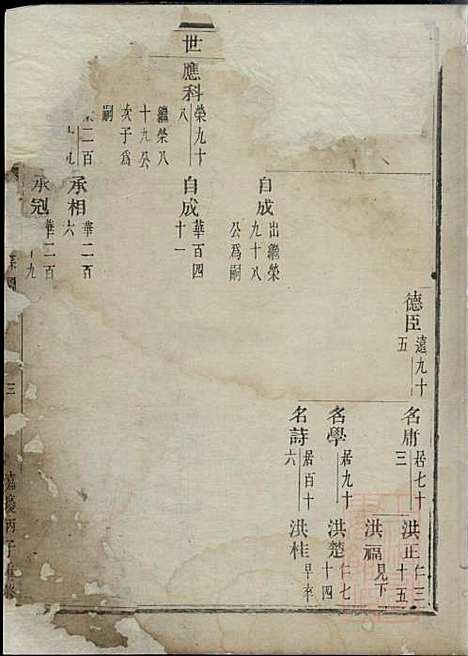 德臣 遠九十五
名庸 居七十三
洪正 仁三十五
洪福 見下
名學 居九十
洪楚 仁七十四
名詩 居百十六
洪桂 早卒
自成 出繼榮九十八公為嗣
世
應科 榮九十八
繼榮八十九公次子為嗣
自成 華百四十一
承相 華二百六
承冠 華二百九
三
嘉慶丙子重修